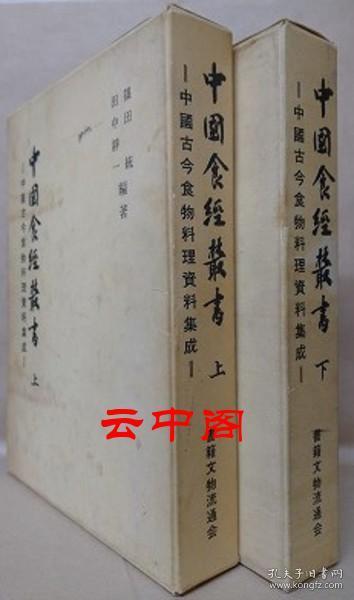 篠田 統
田中静一 編著
中國食經叢書
─中國古今食物料理資料集成─
上
中國食經叢書
─中國古今食物料理資料集成─
上
書籍文物流通会
中國食經叢書
─中國古今食物料理資料集成─
下
書籍文物流通会
云中阁
孔夫子旧书网